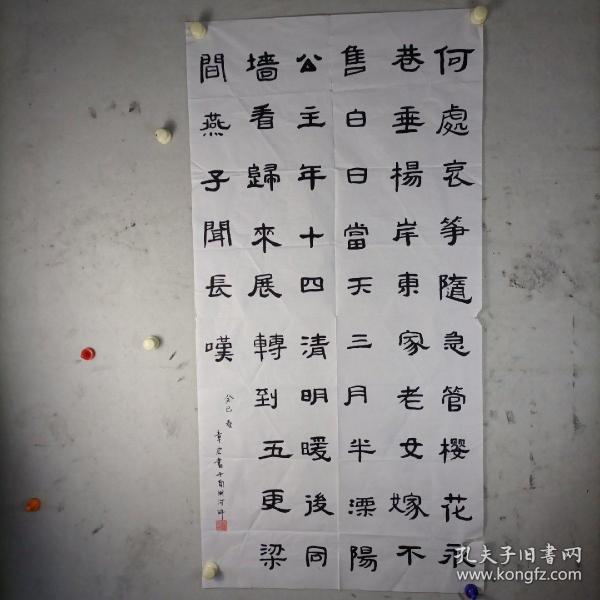 何處哀筝隨急管櫻花永
巷垂楊岸東家老女嫁不
售白日當天三月半溧陽
公主年十四清明暖後同
墻看歸來展轉到五更梁
間燕子聞長嘆
癸巳春
章宏書于
孔夫子旧書网
www.kongfz.com